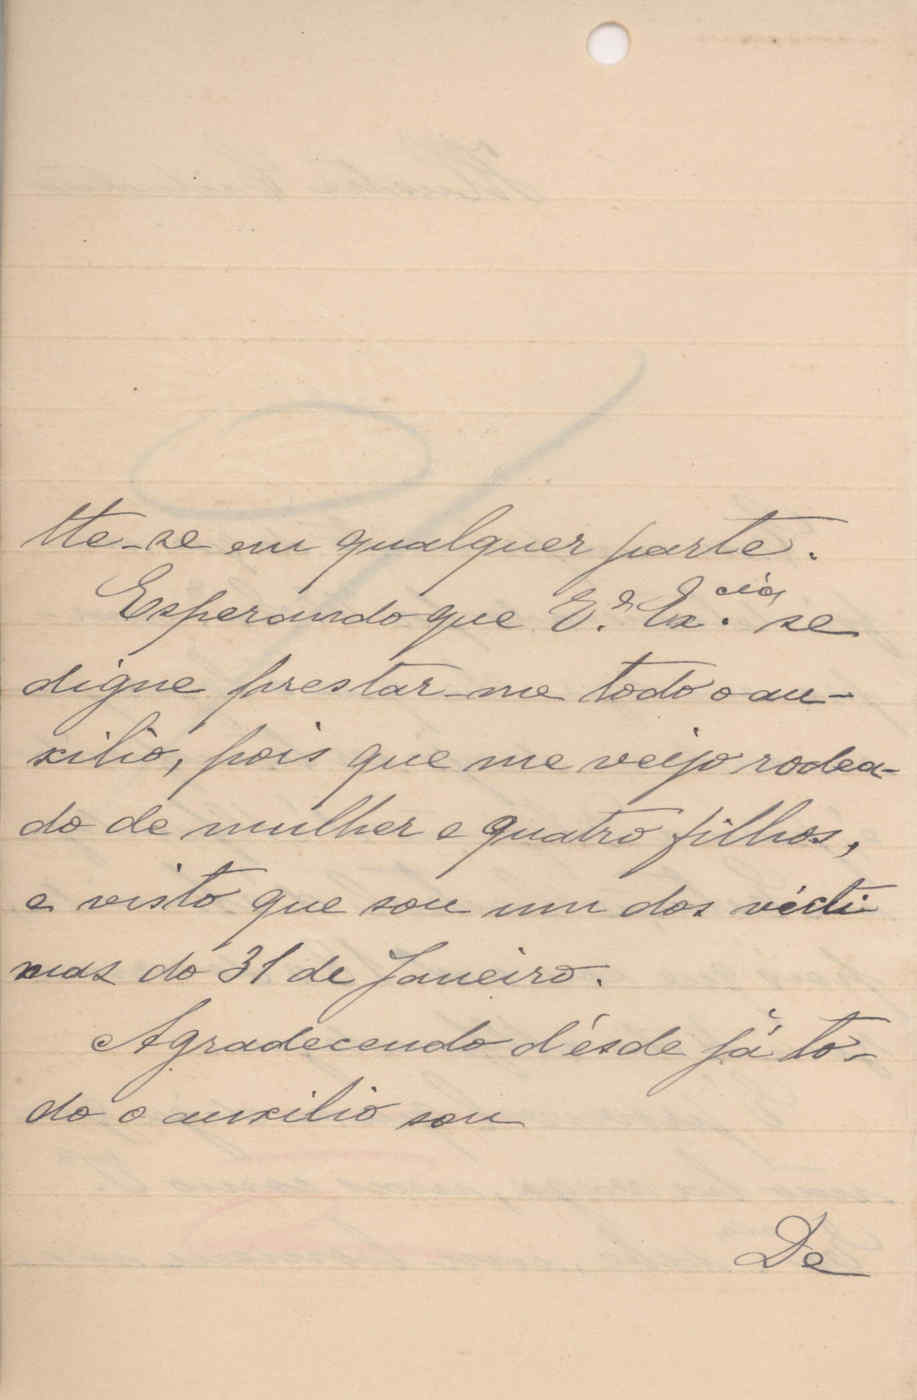 tte-se em qualquer parte.
Esperando que V.ª Ex.cia se
digne prestar-me todo o au-
xilio, pois que me veijo rodea-
do de mulher e quatro filhos,
e visto que sou um dos vícti-
mas do 31 de Janeiro.
Agradecendo d'ésde já to-
do o auxilio sou
De